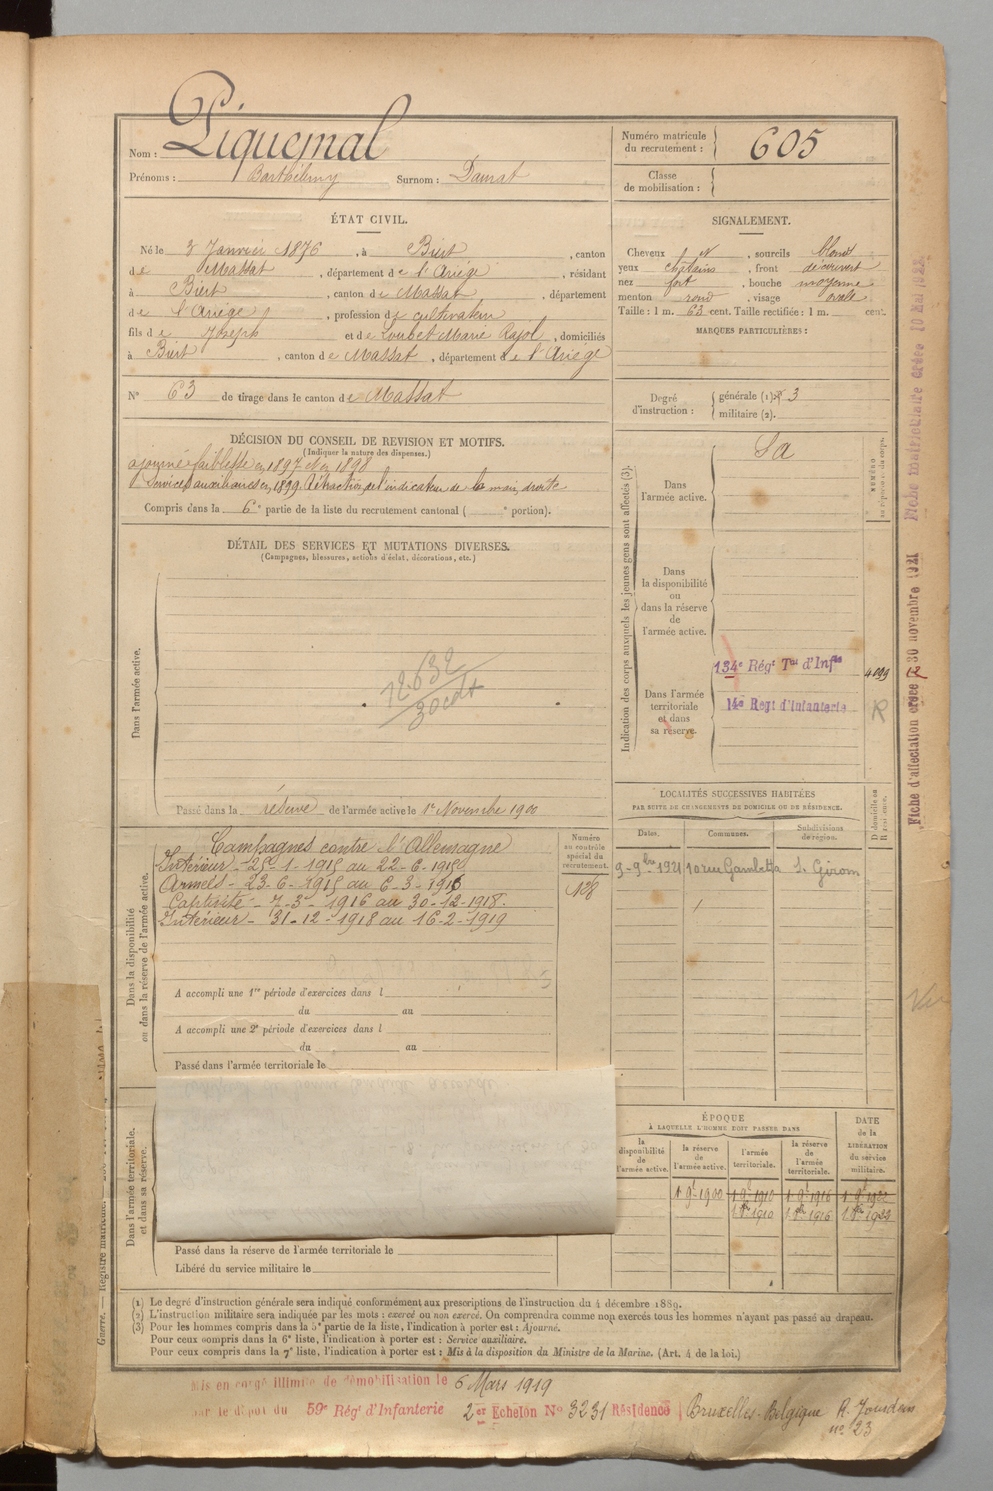 Nom : Piquemal
Prénoms : Barthélemy Surnom : Daurat
Numéro matricule du recrutement : 605
Classe de mobilisation :
ÉTAT CIVIL.
Né le 3 Janvier 1876, à Biert, canton
de Massat, département de l'Ariège, résidant
à Biert, canton de Massat, département
de l'Ariège, profession de cultivateur
fils de Joseph et de Loubet Marie Rajol, domiciliés
à Biert, canton de Massat, département de l'Ariège
SIGNALEMENT.
Cheveux , sourcils blond
yeux châtains, front découvert
nez fort, bouche moyenne
menton rond, visage ovale
Taille : 1 m. 63 cent. Taille rectifiée : 1 m. cent.
MARQUES PARTICULIÈRES :
N° 63 de tirage dans le canton de Massat
Degré d'instruction : générale (1) 3
militaire (2).
DÉCISION DU CONSEIL DE REVISION ET MOTIFS.
(Indiquer la nature des dispenses.)
ajourné faiblesse en 1897 et en 1898
Services auxiliaires en 1899. Rétraction de l'indicateur de la main droite
Compris dans la 6e partie de la liste du recrutement cantonal ( e portion).
DÉTAIL DES SERVICES ET MUTATIONS DIVERSES.
(Campagnes, blessures, actions d'éclat, décorations, etc.)
Dans l'armée active.
12.632
Passé dans la réserve de l'armée active le 1er Novembre 1900
Indication des corps auxquels les jeunes gens sont affectés (3).
NUMÉRO au répertoire du corps.
Dans l'armée active.
Sa
Dans la disponibilité ou dans la réserve de l'armée active.
Dans l'armée territoriale et dans sa réserve.
134e Régt Tal d'Infie
14e Regt d'Infanterie
R
Dans la disponibilité ou dans la réserve de l'armée active.
Campagnes contre l'Allemagne
Intérieur - 25-1-1915 au 22-6-1915
Armées - 23-6-1915 au 6-3-1916
Captivité - 7-3-1916 au 30-12-1918.
Intérieur - 31-12-1918 au 16-2-1919
Numéro au contrôle spécial du recrutement.
128
A accompli une 1re période d'exercices dans l
du au
A accompli une 2e période d'exercices dans l
du au
Passé dans l'armée territoriale le
LOCALITÉS SUCCESSIVES HABITÉES
PAR SUITE DE CHANGEMENTS DE DOMICILE OU DE RÉSIDENCE.
Dates. Communes. Subdivisions de région. Domicile ou Résidence.
9-9bre 1921 10 rue Gambetta St Girons
Dans l'armée territoriale. et dans sa réserve.
Passé dans la réserve de l'armée territoriale le
Libéré du service militaire le
ÉPOQUE
À LAQUELLE L'HOMME DOIT PASSER DANS
la disponibilité de l'armée active.
la réserve de l'armée active.
l'armée territoriale.
la réserve de l'armée territoriale.
DATE de la LIBÉRATION du service militaire.
1 9e 1900 1 9e 1910 1 9e 1916 1 9e 1922
(1) Le degré d'instruction générale sera indiqué conformément aux prescriptions de l'instruction du 4 décembre 1889.
(2) L'instruction militaire sera indiquée par les mots : exercé ou non exercé. On comprendra comme non exercés tous les hommes n'ayant pas passé au drapeau.
(3) Pour les hommes compris dans la 5e partie de la liste, l'indication à porter est : Ajourné.
Pour ceux compris dans la 6e liste, l'indication à porter est : Service auxiliaire.
Pour ceux compris dans la 7e liste, l'indication à porter est : Mis à la disposition du Ministre de la Marine. (Art. 4 de la loi.)
Mis en congé illimité de démobilisation le 6 Mars 1919
par le dépôt du 59e Régt d'Infanterie 2er Echelon No 3231 Résidence Bruxelles-Belgique R. Jourdan
no 23
Fiche d'affectation créée 30 novembre 1921
Fiche matriculaire créée 10 Mai 1922
Guerre. — Registre matricule.